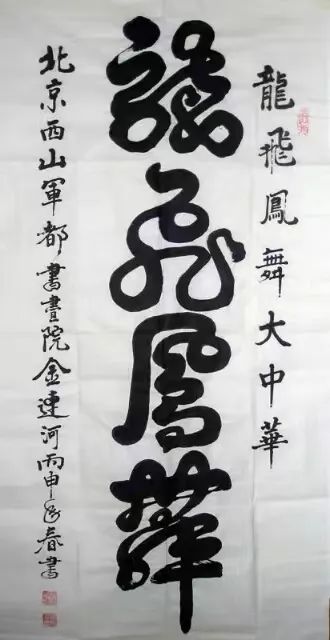 龍飛鳳舞大中華
龍飛鳳舞
北京西山軍都書畫院金連河丙申年春書